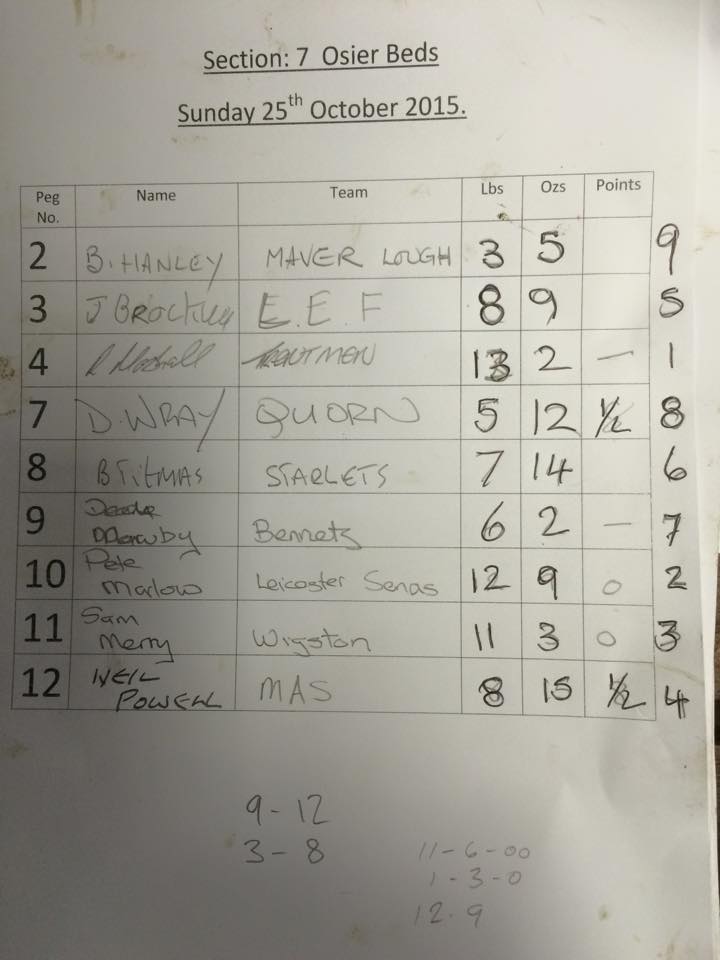 Section: 7 Osier Beds
Sunday 25th October 2015.
Peg No. Name Team Lbs Ozs Points
2 B. HANLEY MAVER LOUGH 3 5 9
3 J Brockley E.E F 8 9 5
4 TROUTMEN 13 2 — 1
7 D. WRAY QUORN 5 12 1/2 8
8 B TITMAS STARLETS 7 14 6
9 Bennets 6 2 — 7
10 Pete Marlow Leicester Senas 12 9 0 2
11 Sam Merry Wigston 11 3 0 3
12 NEIL POWELL MAS 8 15 1/2 4
9 - 12
3 - 8
11 - 6 - 00
1 - 3 - 0
12. 9